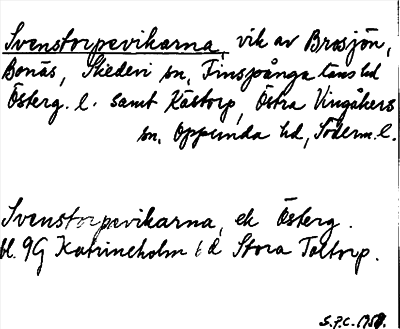 Svenstorpevikarna, vik av Brosjön,
Bonäs, Skedevi sn, Finspånga läns hd
Österg. l. samt Kästorp, Östra Vingåkers
sn, Oppunda hd, Söderm. l.
Svenstorpevikarna, ek Österg.
bl. 9G Katrineholm Stora Toltorp.
S.F.C. 1957.